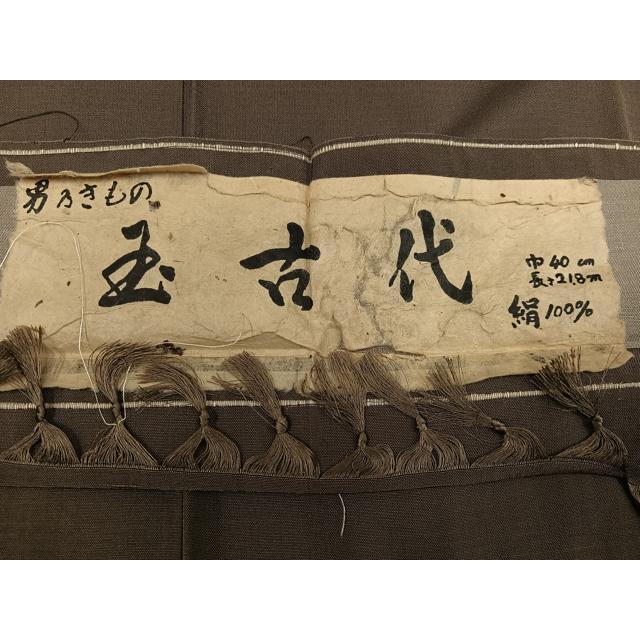 男乃きもの
玉古代
巾40cm
長さ21.8m
絹100%